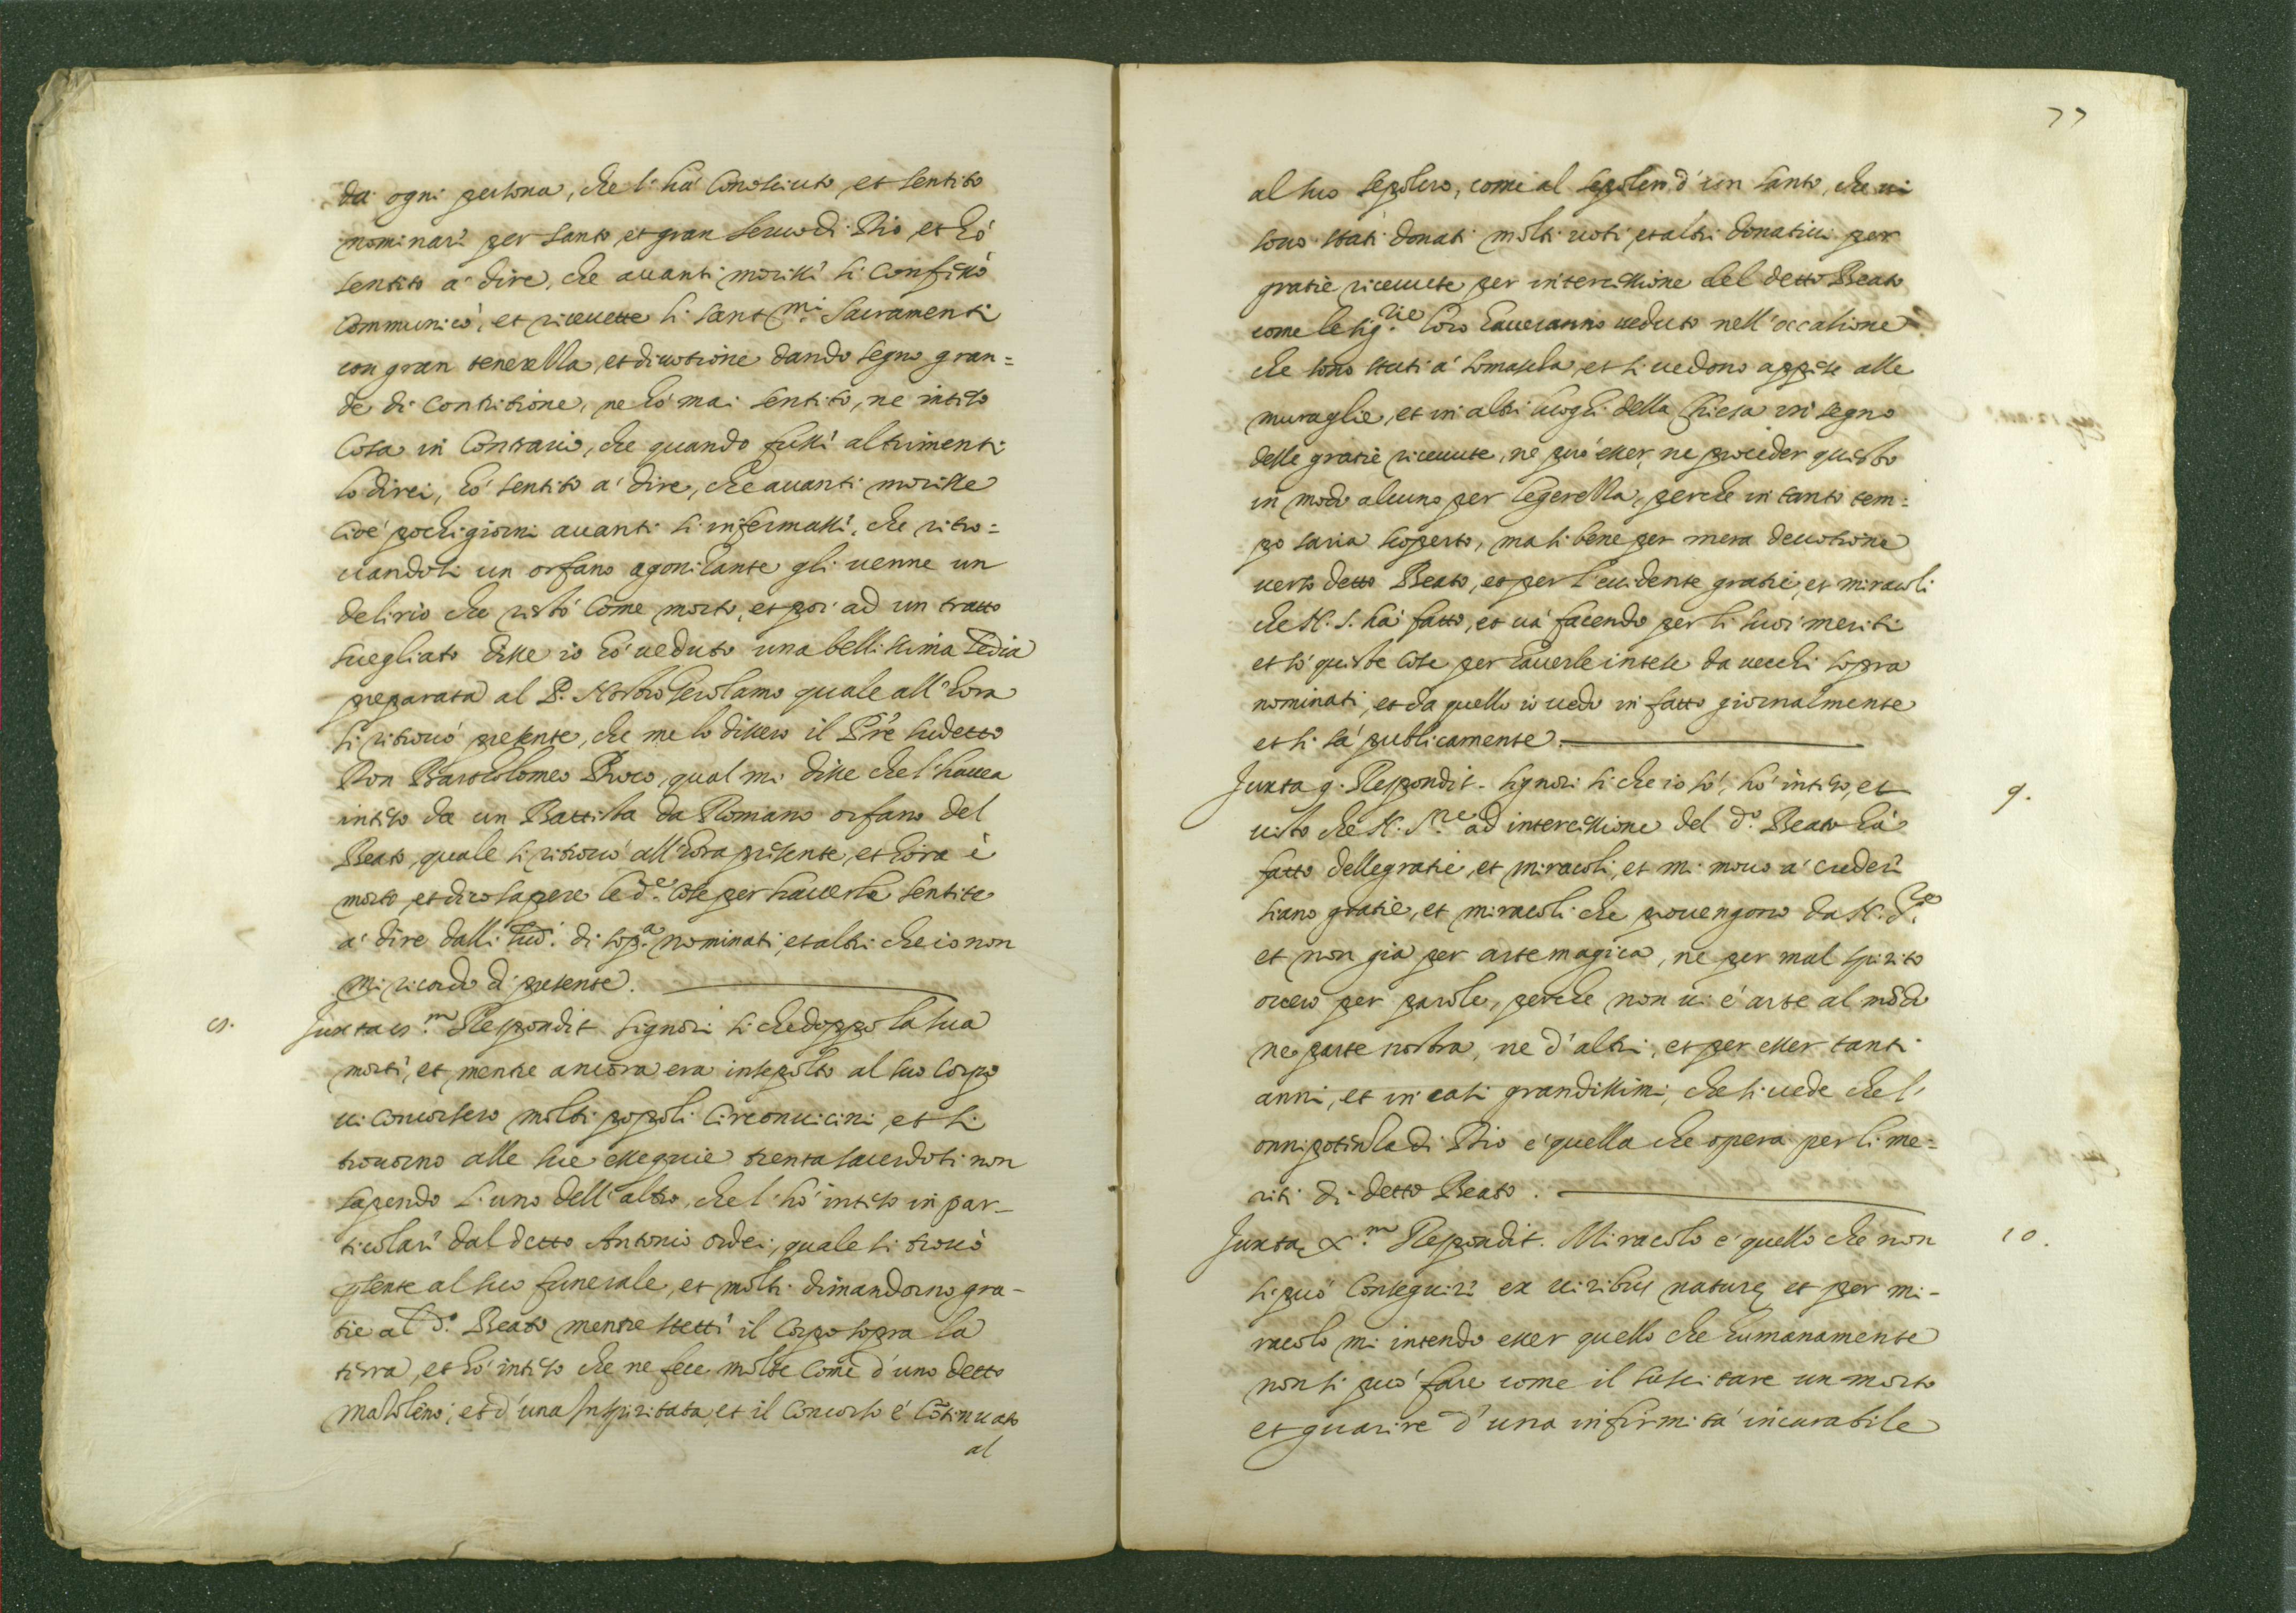 da ogni persona, che l'hà Conosciuto, et sentito
nominarì per santo, et gran seruo di Dio, et hò
sentito a' dire, che auanti morissì si Confessò
Communicò, et riceuette li sant.mi Sacramenti
con gran tenerezza, et diuotione dando segno gran=
de di Contritione, ne hò mai sentito, ne inteso
Cosa in Contrario, che quando fussì altrimenti
lo direi, hò sentito a' dire, che auanti morisse
Cioè pochi giorni auanti s'infermassì, che ritro=
uandosi un orfano agonizante gli uenne un
delirio che restò Come morto, et poi ad un tratto
suegliato disse io hò ueduto una bellissima sedia
preparata al P. Nostro Gerolamo quale all'hora
si ritrouò presente, che me lo dissero il Pre sudetto
Don Bartholomeo Broco, qual mi disse che l'hauea
inteso da un Battista da Romano orfano del
Beato, quale si ritrouò all'hora presente, et hora è
morto, et dico sapere le d.e Cose per hauerle sentite
a' dire dalli sud.i di sop.a nominati, et altri che io non
mi ricordo di presente.
8. Juxta 8.m Respondit. Signori si che doppo la sua
mortì, et mentre ancora era insepolto al suo Corpo
ui concorsero molti popoli Circonuicini, et si
trouorno alle sue essequie trenta sacerdoti non
sapendo l'uno dell'altro, che l'hò inteso in par-
ticolarì dal detto Antonio Ordei, quale si trouò
pnte al suo funerale, et molti dimandorno gra-
tie al d.o Beato mentre stettì il Corpo sopra la
terra, et hò inteso che ne fece molte Come d'uno detto
Mazoleno, et d'una Inspiritata, et il Concorso è Cõtinuato
al
77
al suo sepolcro, come al sepolcro d'un santo, che ui
sono stati donati molti uoti, et altri donatiui per
gratie riceuute per intercessione del detto Beato
come le Sig.rie loro haueranno ueduto nell'occasione
che sono stati a' Somascha, et si uedono appese alle
muraglie, et in altri luoghi della Chiesa in segno
delle gratie riceuute, ne può esser, ne proceder questo
in modo alcuno per legerezza, perche in tanto tem=
po saria scoperto, ma si bene per mera deuotione
uerso detto Beato, et per l'euidente gratie, et miracoli
che N. S. hà fatto, et uà facendo per li suoi meriti
et sò queste Cose per hauerle intese da uecchi sopra
nominati, et da quello io uedo in fatto giornalmente
et si sà publicamente.
Juxta 9. Respondit. Signori si che io sò, hò inteso, et 9.
uisto che N. S.re ad intercessione del d.o Beato hà
fatto delle gratie, et miracoli, et mi mouo a' crederì
siano gratie, et miracoli che prouengono da N. S.re
et non già per arte magica, ne per mal spirito
ouero per parole, perche non ui è arte al mõdo
ne parte nostra, ne d'altri, et per esser tanti
anni, et in casi grandissimi, che si uede che l'
onnipotenza di Dio è quella che opera per li me=
riti di detto Beato.
Juxta X.m Respondit. Miracolo è quello che non 10.
si può Conseguirì ex uiribus naturę, et per mi-
racolo mi intendo esser quello che humanamente
non si può fare come il suscitare un morto
et guarire d'una infirmità incurabile